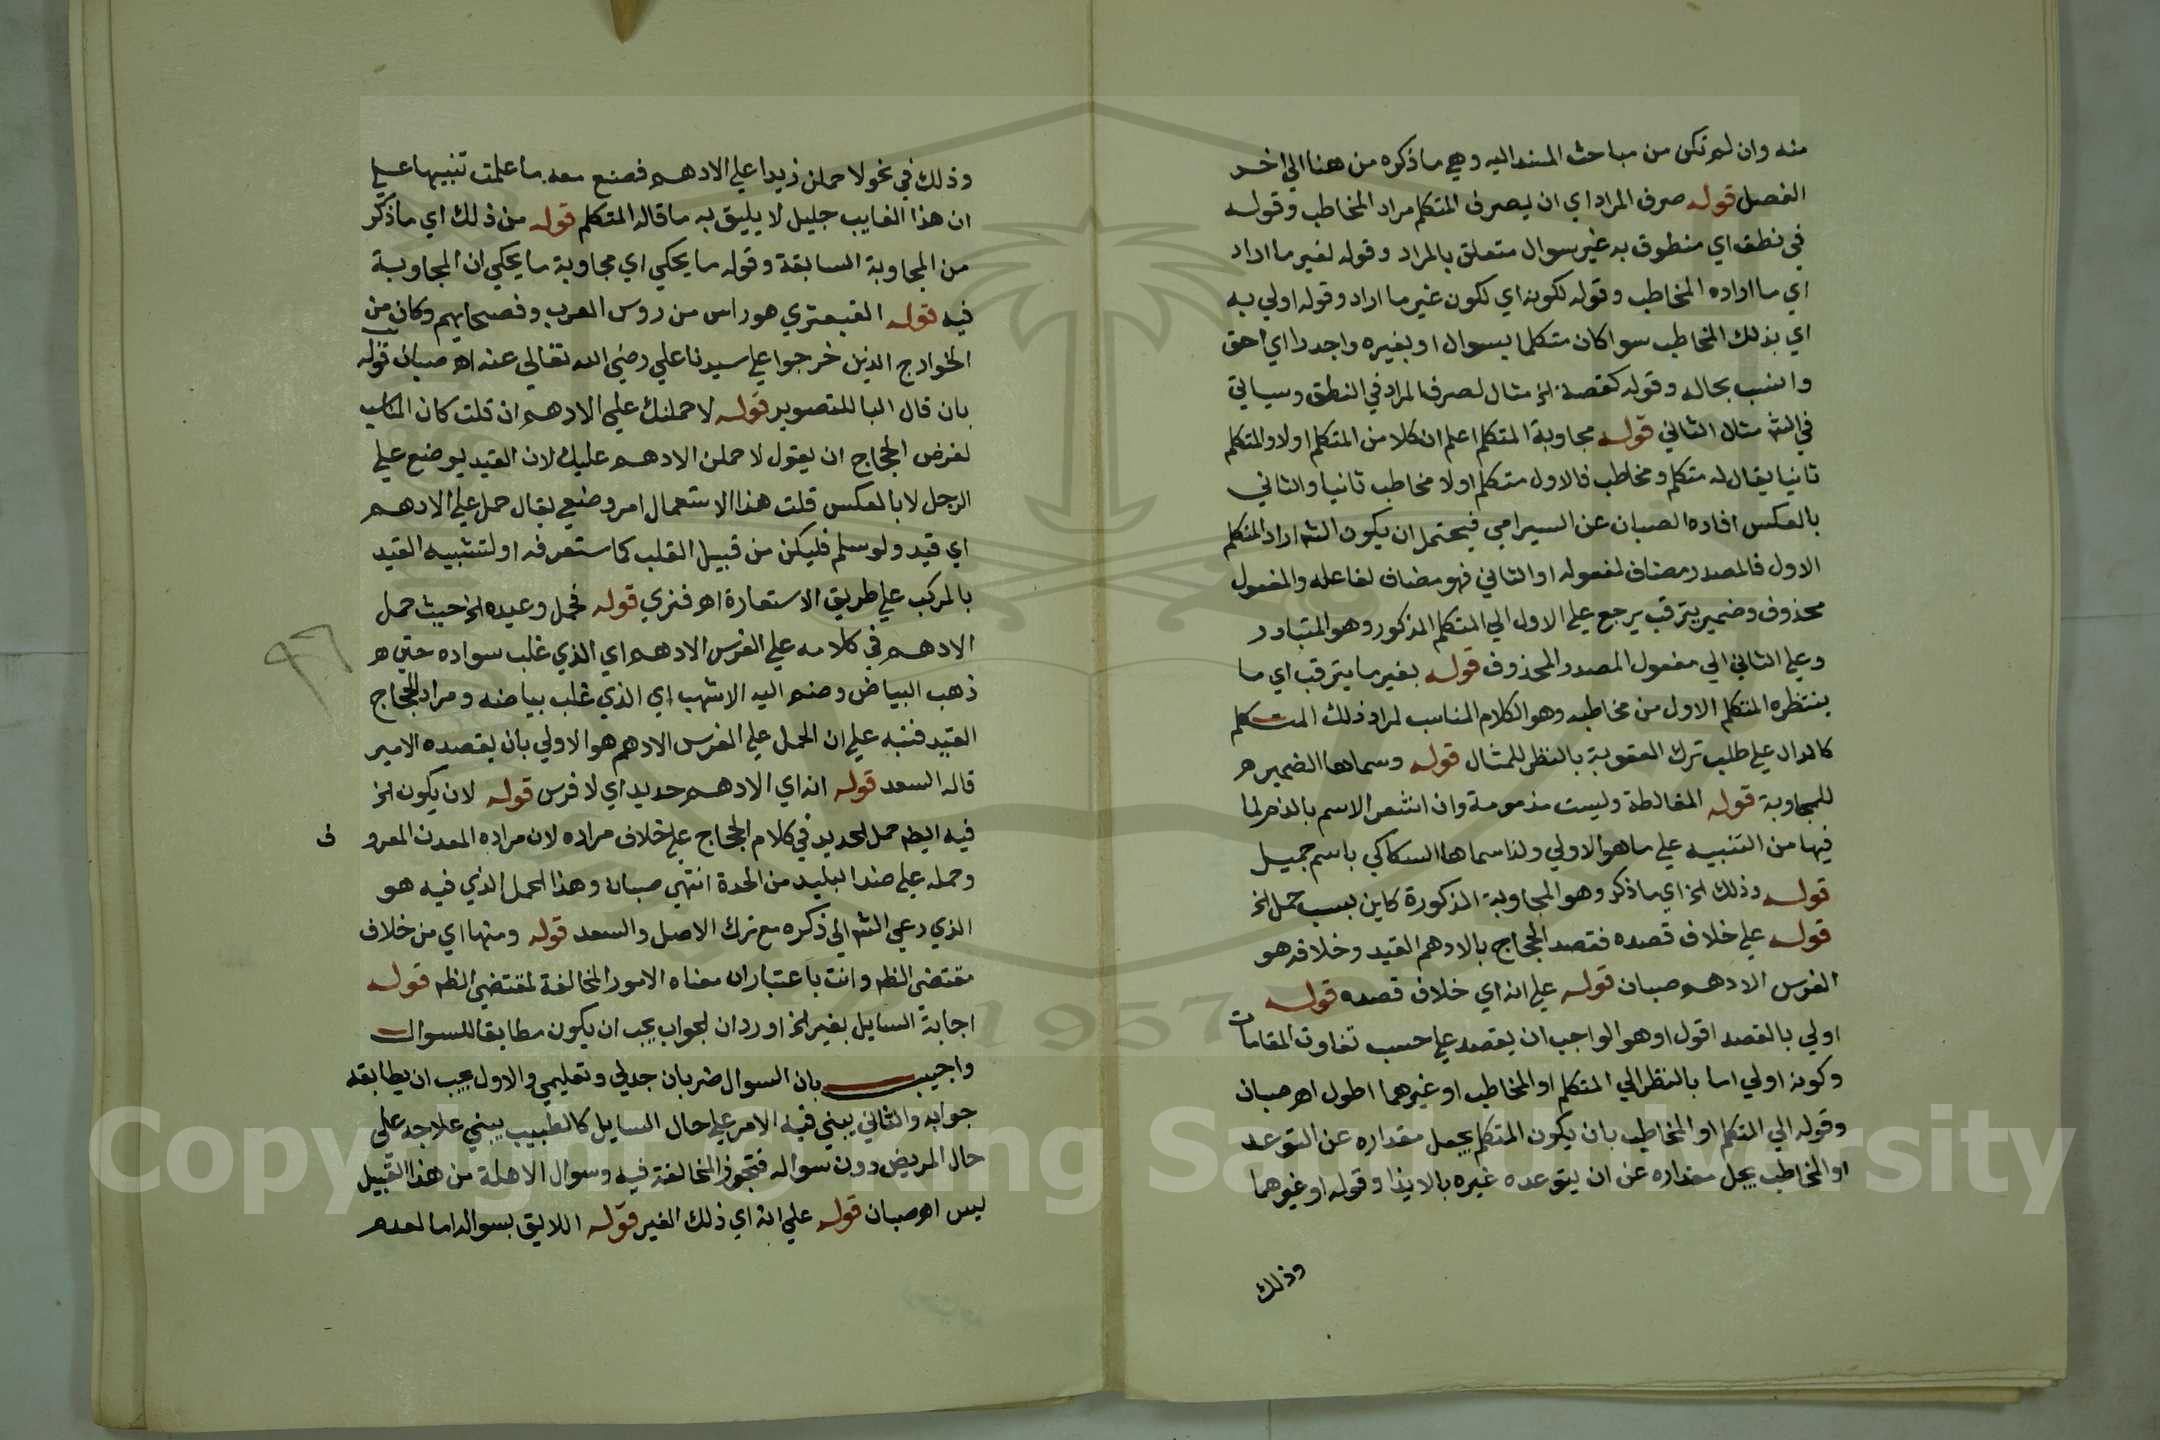 منه وان لم تكن من مباحث المسند اليه وهي ما ذكره من هنا الي اخر
الفصل قوله صرف المراد اي ان يصرف المتكلم مراد المخاطب وقوله
في نطق اي منطوق به غير سوال متعلق بالمراد وقوله لغير ما اراد
اي ما اراده المخاطب وقوله لكونه اي لكون غير ما اراد وقوله اولي به
اي بذلك المخاطب سوا كان متكلما بسوال او بغيره واجدرا اي احق
وانسب بحاله وقوله كقصة الخ مثال لصرف المراد في النطق وسياتي
في الشم مثال الثاني قوله مجاوبة المتكلم اعلم ان كلا من المتكلم اولا والمتكلم
ثانيا يقال له متكلم ومخاطب فالاول متكلم اولا مخاطب ثانيا والثاني
بالعكس افاده الصبان عن السيرامي فيحتمل ان يكون الشم اراد المتكلم
الاول فالمصدر مضاف لمفعوله او الثاني فهو مضاف لفاعله والمفعول
محذوف وضمير يترقب يرجع علي الاول الي المتكلم المذكور وهو المتبادر
وعلي الثاني الي مفعول المصدر المحذوف قوله بغير ما يترقب اي ما
ينتظره المتكلم الاول من مخاطبه وهو الكلام المناسب لمراد ذلك المتكلم
كالدال علي طلب ترك العقوبة بالنظر للمثال قوله وسماها الضمير
للمجاوبة قوله المغالطة وليست مذمومة وان اشعر الاسم بالذم لما
فيها من التنبيه علي ما هو الاولي ولذا سماها السكاكي باسم جميل
قوله وذلك الخ اي ما ذكر وهو المجاوبة المذكورة كاين بسبب حمل الخ
قوله علي خلاف قصده فقصد الحجاج بالادهم القيد وخلافه هو
الفرس الادهم صبان قوله علي انه اي خلاف قصده قوله
اولي بالقصد اقول او هو الواجب ان يقصد علي حسب تفاوت المقامات
وكونه اولي اما بالنظر الي المتكلم او المخاطب او غيرهما اطول اهر صبان
وقوله الي المتكلم او المخاطب بان يكون المتكلم يجعل مقداره عن التوعد
او المخاطب يجل مقداره عن ان يتوعده غيره بالايذا وقوله او غيرهما
وذلك
وذلك في نحو لاحملن زيدا علي الادهم فصنع معه ما علمت تنبيها علي
ان هذا الغايب جليل لا يليق به ما قاله المتكلم قوله من ذلك اي ما ذكر
من المجاوبة السابقة وقوله ما يحكي اي مجاوبة ما يحكي ان المجاوبة
فيه قوله القبعثري هو راس من روس العرب وفصحايهم وكان من
الخوارج الذين خرجوا علي سيدنا علي رضي الله تعالي عنه اهر صبان قوله
بان قال البا للتصوير قوله لاحملنك علي الادهم ان قلت كان المناسب
لغرض الحجاج ان يقول لاحملن الادهم عليك لان القيد يوضع علي
الرجل لا بالعكس قلت هذا الاستعمال امر وضعي يقال حمل علي الادهم
اي قيد ولو سلم فليكن من قبيل القلب كما ستعرفه او لتشبيه القيد
بالمركب علي طريق الاستعارة اهر فنري قوله فحمل وعيده الخ حيث حمل
الادهم في كلامه علي الفرس الادهم اي الذي غلب سواده حتي
ذهب البياض وضم اليه الاشهب اي الذي غلب بياضه ومراد الحجاج
القيد فنبه علي ان الحمل علي الفرس الادهم هو الاولي بان يقصده الامير
قاله السعد قوله انه اي الادهم حديد اي لا فرس قوله لان يكون الخ
فيه ايضا حمل الحديد في كلام الحجاج علي خلاف مراده لان مراده المعدن المعروف
وحمله علي ضد البليد من الحدة انتهي صبان وهذا الحمل الذي فيه هو
الذي دعي الشم الي ذكره مع ترك الاصل والسعد قوله ومنها اي من خلاف
مقتضي الظم وانت باعتبار ان معناه الامور المخالفة لمقتضي الظم قوله
اجابة السايل بغير الخ اورد ان الجواب يجب ان يكون مطابقا للسوال
واجيب بان السوال ضربان جدلي وتعليمي والاول يجب ان يطابقه
جوابه والثاني يبني فيه الامر علي حال السايل كالطبيب يبني علاجه علي
حال المريض دون سواله فتجوز المخالفة فيه وسوال الاهلة من هذا القبيل
ليس اهر صبان قوله علي انه اي ذلك الغير قوله اللايق بسواله اما لعدم
Copyright © King Saud University
1957